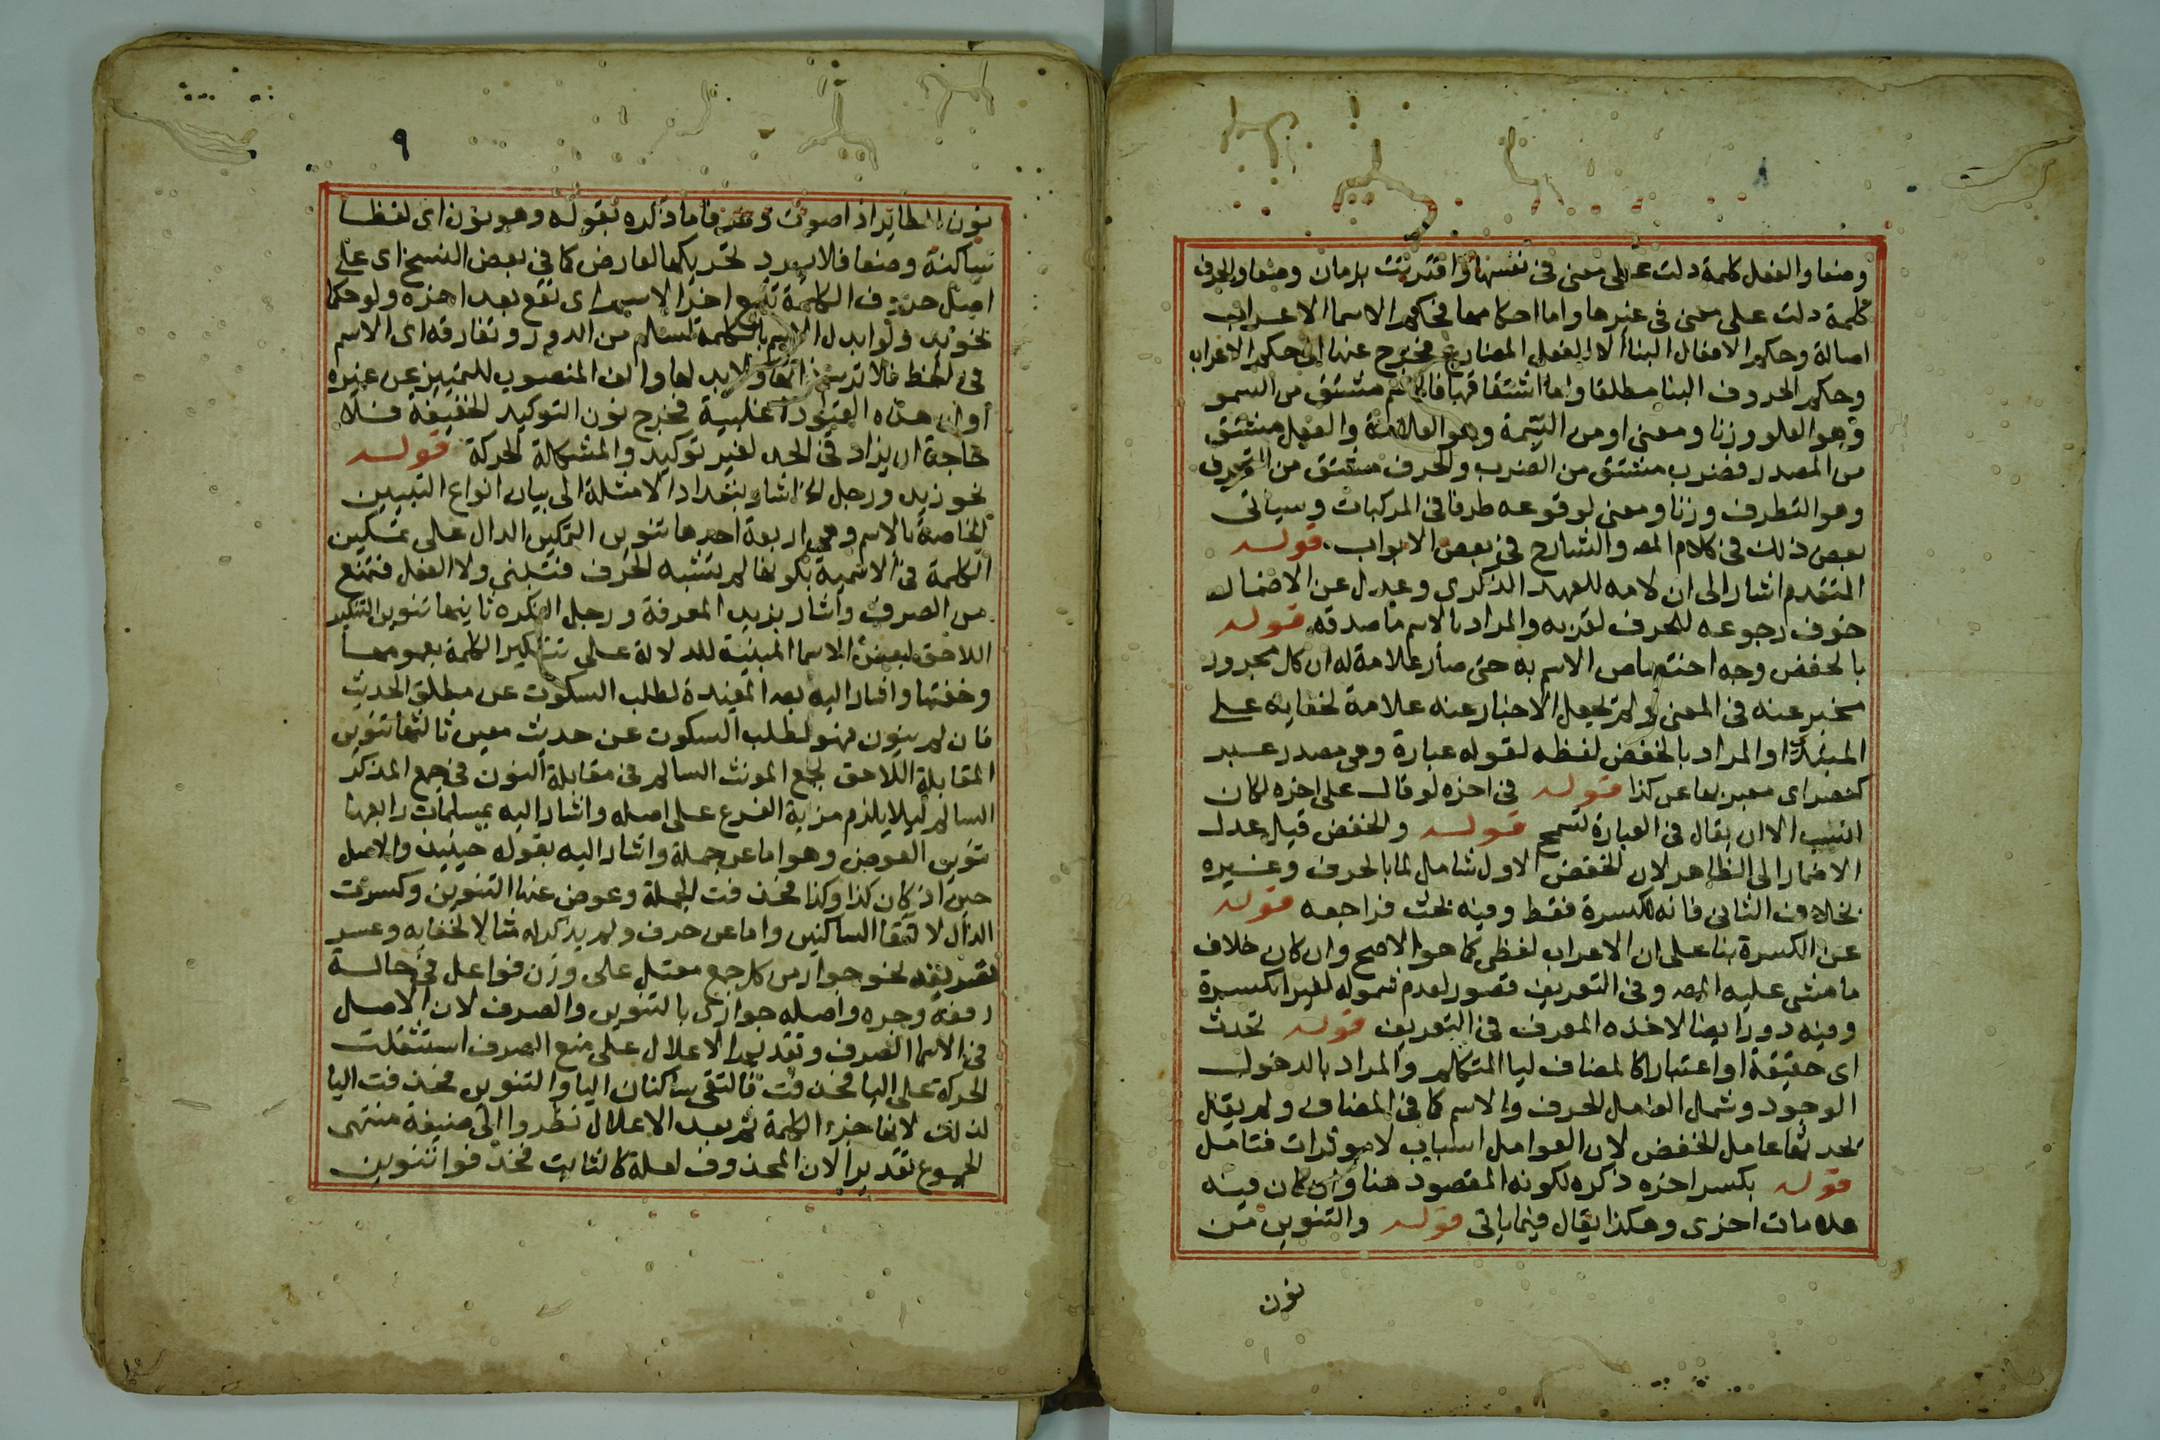 وضعا والفعل كلمة دلت على معنى في نفسها واقترنت بزمان وضعا والحرف
كلمة دلت على معنى في غيرها واما احكامها فحكم الاسما الاعراب
اصالة وحكم الافعال البنا الا الفعل المضارع فخرج عنها الى حكم الاعراب
وحكم الحروف البنا مطلقا واما اشتقاقها فالاسم مشتق من السمو
وهو العلو وزنا ومعنى او من السمة وهو العلامة والفعل مشتق
من المصدر فضرب مشتق من الضرب والحرف مشتق من التحرف
وهو التطرف وزنا ومعنى لوقوعه طرفا في المركبات وسياتى
بعض ذلك في كلام المص والشارح في بعض الابواب قوله
المتقدم اشار الى ان لامه للعهد الذكرى وعدل عن الاضمار
خوف رجوعه للحرف لقربه والمراد بالاسم ماصدقه قوله
بالخفض وجه اختصاص الاسم به حتى صار علامة له ان كل مجرور
مخبر عنه في المعنى ولم يجعل الاخبار عنه علامة لخفايه على
المبتدى او المراد بالخفض لفظه لقوله عبارة وهى مصدر عبر
كنصر اى معبر بها عن كذا قوله في اخره لو قال على اخره لكان
انسب الا ان يقال في العبارة تسمح قوله والخفض قيل عدل
الاضمار الى الظاهر لان الخفض الاول شامل لما بالحرف وغيره
بخلاف الثانى فانه للكسرة فقط وفيه بحث فراجعه قوله
عن الكسرة بنا على ان الاعراب لفظى كما هو الاصح وان كان خلاف
ما مشى عليه المص وفى التعريف قصور لعدم شموله لغير الكسرة
وفيه دور ايضا لاخذه المعرف في التعريف قوله تحدث
اى حقيقة او اعتبارا كالمضاف ليا المتكلم والمراد بالدخول
الوجود وشمل العامل الحرف والاسم كما في المضاف ولم يقل
يحدثها عامل الخفض لان العوامل اسباب لا موثرات فتامل
قوله بكسر اخره ذكره لكونه المقصود هنا وان كان فيه
علامات اخرى وهكذا يقال فيما ياتى قوله والتنوين من
نون
٩
نون الطاير اذا صوت وعرفا ما ذكره بقوله وهو نون اى لفظا
ساكنة وضعا فلا يرد تحريكها لعارض كما في بعض النسخ اى على
اصل حروف الكلمة تتبع اخر الاسم اى تقع بعد اخره ولو حكما
نحو يد ولو ابدل الاسم بالكلمة لسلم من الدور وتفارقه اى الاسم
في الخط فلا ترسم ذاتها ولا بدلها والف المنصوب للتمييز عن غيره
او ان هذه القيود اغلبية فخرج نون التوكيد الخفيفة فلا
حاجة ان يزاد في الحد لغير توكيد والمشكلة الحركة قوله
نحو زيد ورجل الخ اشار بتعداد الامثلة الى بيان انواع التنوين
الخاصة بالاسم وهى اربعة احدها تنوين التمكين الدال على تمكين
الكلمة في الاسمية بكونها لم تشبه الحرف فتبنى ولا الفعل فتمنع
من الصرف واشار بزيد المعرفة ورجل النكرة ثانيها تنوين التنكير
اللاحق لبعض الاسما المبنية للدلالة على تنكير الكلمة بعمومها
وخفتها واشار اليه بصه المفيدة لطلب السكوت عن مطلق الحديث
فان لم ينون فهو لطلب السكوت عن حديث معين ثالثها تنوين
المقابلة اللاحق لجمع المونث السالم في مقابلة النون في جمع المذكر
السالم ليلا يلزم مزية الفرع على اصله واشار اليه بمسلمات رابعها
تنوين العوض وهو اما عن جملة واشار اليه بقوله حينيذ والاصل
حين اذ كان كذا وكذا فحذفت الجملة وعوض عنها التنوين وكسرت
الذال لالتقا الساكنين واما عن حرف ولم يذكر له مثالا لخفايه وعسر
تعريفه نحو جوار من كل جمع معتل على وزن فواعل في حالة
رفعه وجره واصله جوارى بالتنوين والصرف لان الاصل
في الاسما الصرف وتقديم الاعلال على منع الصرف استثقلت
الحركة على اليا فحذفت فالتقى ساكنان اليا والتنوين فحذفت اليا
لذلك لانها جزء الكلمة ثم بعد الاعلال نظروا الى صيغة منتهى
الجموع تقديرا لان المحذوف لعلة كالثابت فحذفوا تنوين